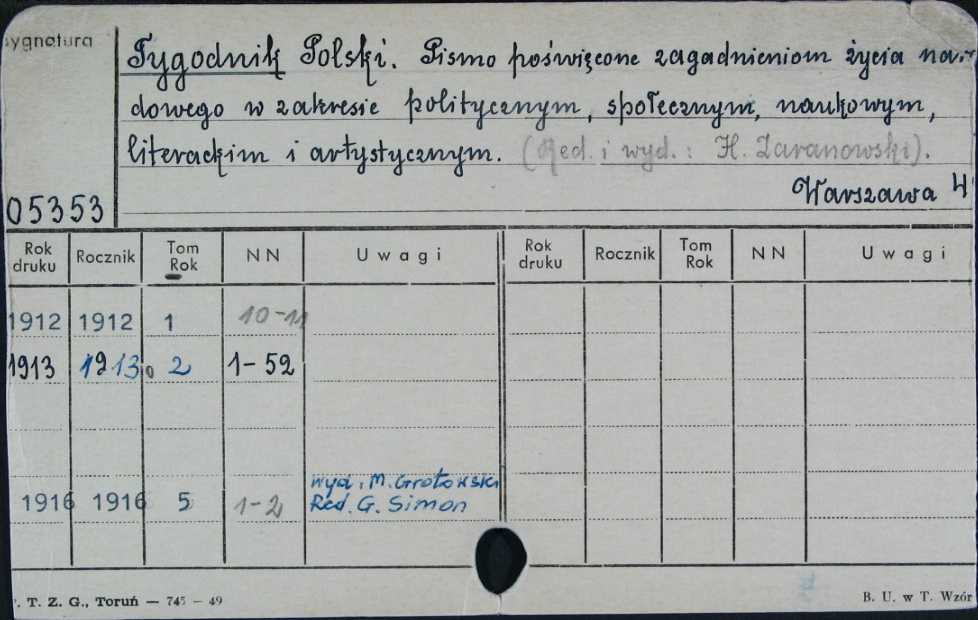 Sygnatura
Tygodnik Polski. Pismo poświęcone zagadnieniom życia na-
dowego w zakresie politycznym, społecznym, naukowym,
literackim i artystycznym. (Red. i wyd.: H. Zaranowski).
05353 Warszawa 4
Rok druku Rocznik Tom Rok NN Uwagi Rok druku Rocznik Tom Rok NN Uwagi
1912 1912 1 10-11
1913 1913. 2 1-52
wyd. M. Grotowski
1916 1916 5 1-2 Red. G. Simon
. T. Z. G., Toruń — 745 — 49 B. U. w T. Wzór